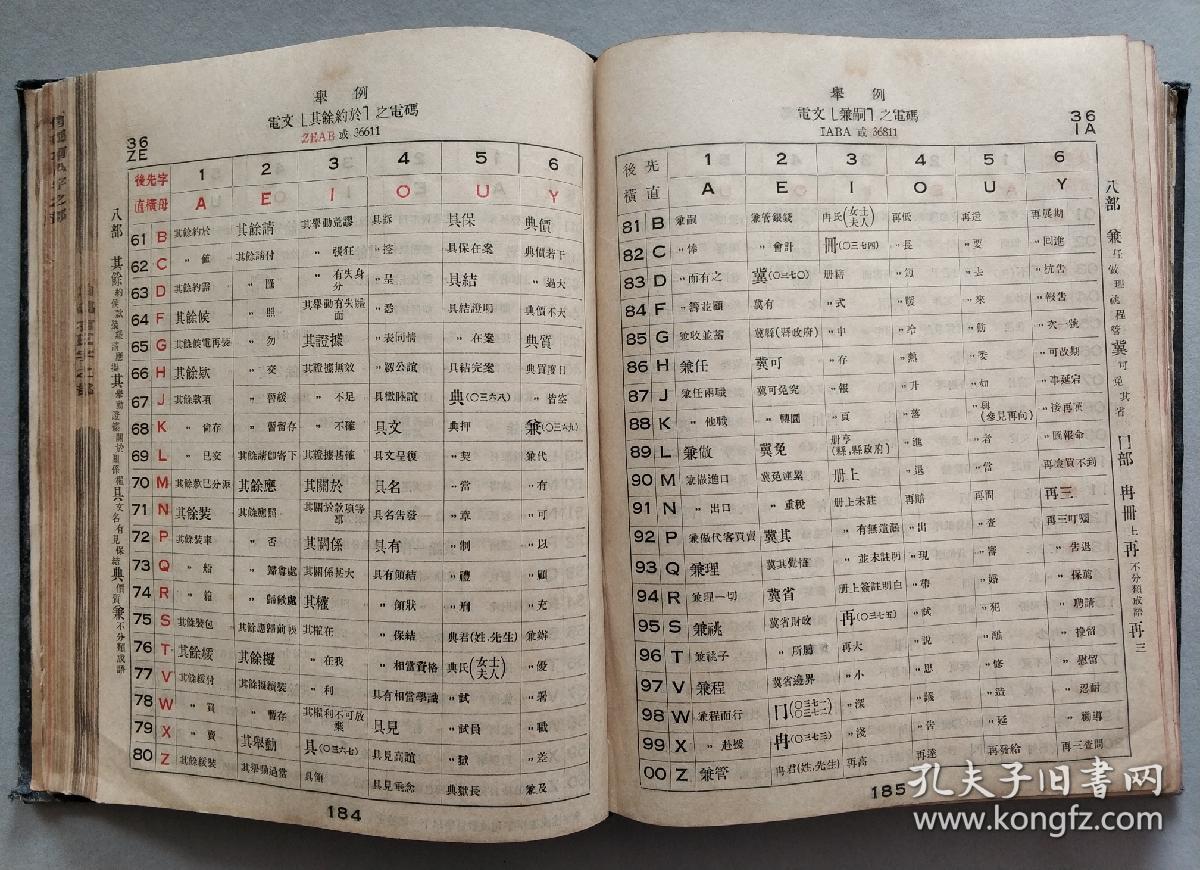 舉例
電文「其餘約於」之電碼
ZEAB 或 36611
36
ZE
後先字 1 2 3 4 5 6
直橫母 A E I O U Y
61 B 其餘約於 其餘請 其舉動荒謬 具 具保 典價
62 C 〃值 其餘請付 〃 〃控 具保在案 典價若干
63 D 其餘約需 〃匯 〃有失身分 〃呈 具結 〃過大
64 F 其餘候 〃照 其舉動有失體面 〃悉 具結證明 典價不大
65 G 其餘候電再裝 〃勿 其證據 〃表同情 〃在案 典質
66 H 其餘欵 〃交 其證據無效 〃認公誼 具結完案 典質度日
67 J 其餘欵項 〃暫緩 〃不足 具徵睦誼 典(〇三六八) 〃皆空
68 K 〃尙存 〃暫暫存 〃不確 具文 典押 兼(〇三六九)
69 L 〃已交 其餘請卽寄下 其證據甚確 具文呈復 〃契 兼代
70 M 其餘欵已分派 其餘應 其關於 具名 〃當 〃有
71 N 其餘裝 其餘應照 其關於欵項等部 具名吿發 〃章 〃可
72 P 其餘裝車 〃否 其關係 具有 〃制 〃以
73 Q 〃船 〃歸尊處 其關係甚大 具有領結 〃禮 〃顧
74 R 〃箱 〃歸敝處 其權 〃領狀 〃刑 〃充
75 S 其餘裝包 其餘應歸前 其權在 〃保結 典君(姓,先生) 兼辦
76 T 其餘緩 其餘擬 〃在我 〃相當資格 典氏(女士夫人) 〃優
77 V 其餘緩付 其餘擬續裝 〃利 具有相當學識 〃試 〃署
78 W 〃買 〃暫存 其權利不可放棄 具見 〃試員 〃職
79 X 〃賣 其舉動 具(〇三六七) 具見高誼 〃獄 〃差
80 Z 其餘緩裝 其舉動適當 具領 具見垂念 典獄長 兼及
八部 其餘
184
舉例
電文「兼嗣」之電碼
IABA 或 36811
36
IA
後先 1 2 3 4 5 6
橫直 A E I O U Y
81 B 兼嗣 兼管銀錢 冉氏(女士夫人) 再低 再造 再展期
82 C 〃俸 〃會計 冊(〇三七四) 〃長 〃要 〃回進
83 D 〃而有之 冀(〇三七〇) 册籍 〃到 〃去 〃抗吿
84 F 〃籌並顧 冀有 〃式 〃暖 〃來 〃報吿
85 G 兼收並蓄 冀縣(縣政府) 〃中 〃冷 〃動 〃次一號
86 H 兼任 冀可 〃存 〃熱 〃委 〃可改期
87 J 兼任兩職 冀可免究 〃報 〃升 〃如 〃事延宕
88 K 〃他職 〃轉圜 〃頁 〃落 〃與(參見再向) 〃後再頂
89 L 兼做 冀免 册亨(縣,縣政府) 〃進 〃者 〃匯報命
90 M 兼做進口 冀免連累 册上 〃退 〃當 再要買不到
91 N 〃出口 〃重稅 册上未註 再賠 再問 再三
92 P 兼做代客買賣 冀其 〃有無遺漏 〃出 〃查 再三叮嚀
93 Q 兼理 冀其覺悟 〃並未註明 〃現 〃審 〃吿退
94 R 兼理一切 冀省 册上簽註明白 〃帶 〃婚 〃保薦
95 S 兼祧 冀省財政 再(〇三七五) 〃試 〃犯 〃聘請
96 T 兼祧子 〃所屬 再大 〃說 〃醮 〃挽留
97 V 兼程 冀省邊界 〃小 〃思 〃修 〃慰留
98 W 兼程而行 冂(〇三七一 〇三七二) 〃深 〃議 〃造 〃忍耐
99 X 〃赴援 冉(〇三七三) 〃淺 〃吿 〃延 〃勸導
00 Z 兼管 冉君(姓,先生) 再高 再達 再發給 再三查問
八部 兼任做理祧程管 冀可免其省 冂部 冉冊上 再不分類成語 再三
185
孔夫子旧书网
www.kongfz.com